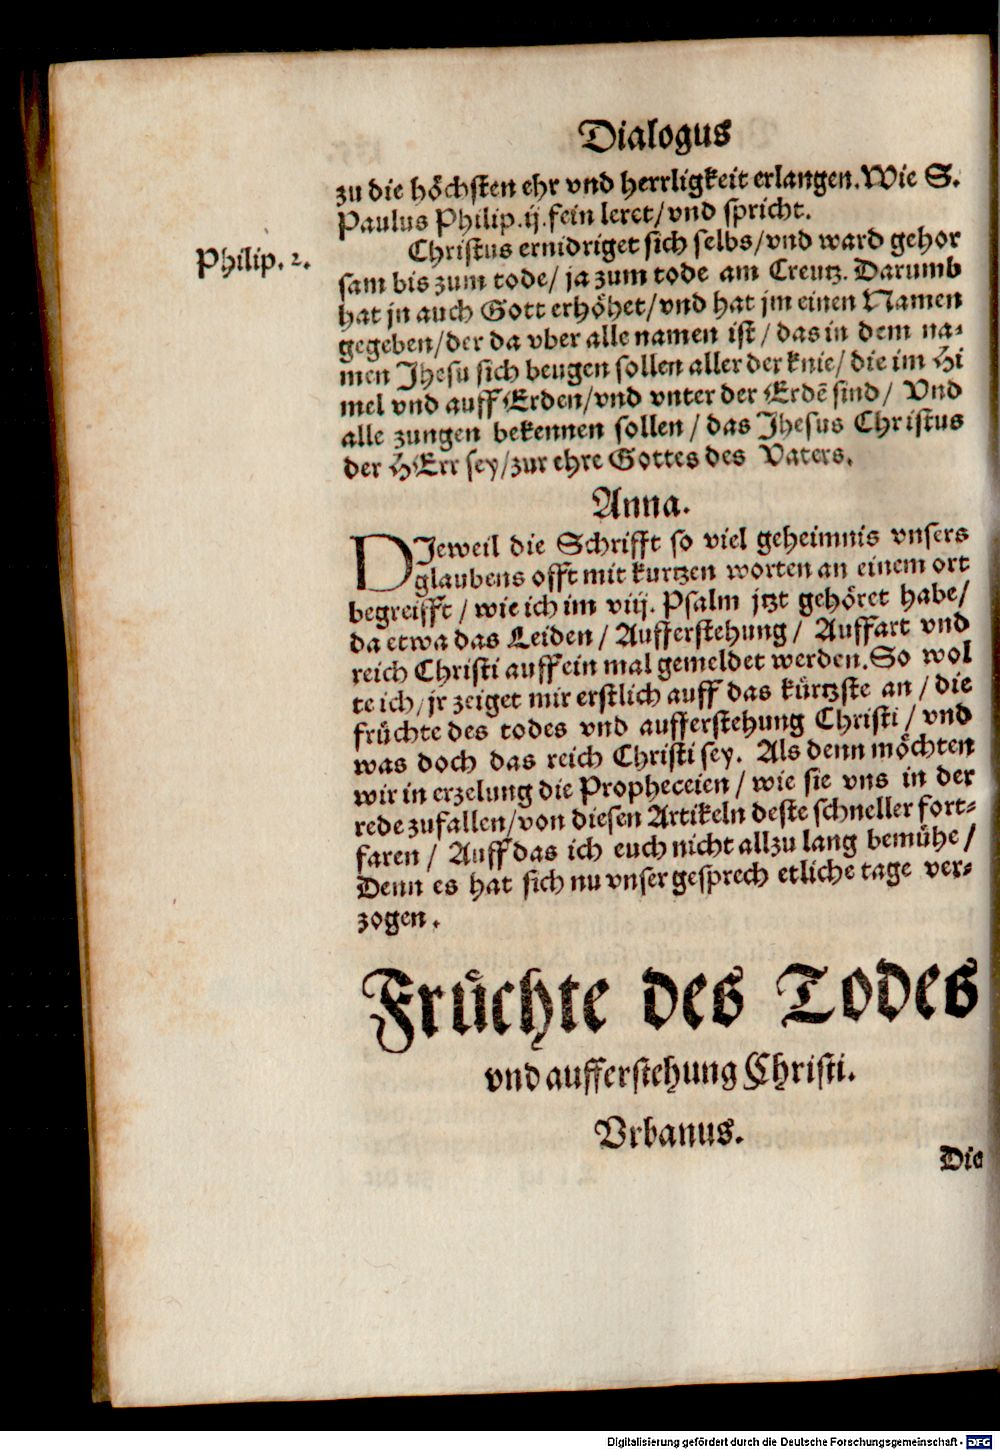 Dialogus
zu die höchsten ehr vnd herrligkeit erlangen. Wie S.
Paulus Philip. ij. fein leret/ vnd spricht.
Philip. 2.
Christus ernidriget sich selbs/ vnd ward gehor
sam bis zum tode/ ja zum tode am Creutz. Darumb
hat jn auch Gott erhöhet/ vnd hat jm einen Namen
gegeben/ der da vber alle namen ist/ das in dem na-
men Jhesu sich beugen sollen aller der knie/ die im Hi
mel vnd auff Erden/ vnd vnter der Erdẽ sind/ Vnd
alle zungen bekennen sollen/ das Jhesus Christus
der HErr sey/ zur ehre Gottes des Vaters.
Anna.
DJeweil die Schrifft so viel geheimnis vnsers
glaubens offt mit kurtzen worten an einem ort
begreifft/ wie ich im viij. Psalm jtzt gehöret habe/
da etwa das Leiden/ Aufferstehung/ Auffart vnd
reich Christi auff ein mal gemeldet werden. So wol
te ich/ jr zeiget mir erstlich auff das kürtzste an/ die
früchte des todes vnd aufferstehung Christi/ vnd
was doch das reich Christi sey. Als denn möchten
wir in erzelung die Propheceien/ wie sie vns in der
rede zufallen/ von diesen Artikeln deste schneller fort-
faren/ Auff das ich euch nicht allzu lang bemühe/
Denn es hat sich nu vnser gesprech etliche tage ver-
zogen.
Früchte des Todes
vnd aufferstehung Christi.
Vrbanus.
Die
Digitalisierung gefördert durch die Deutsche Forschungsgemeinschaft - DFG